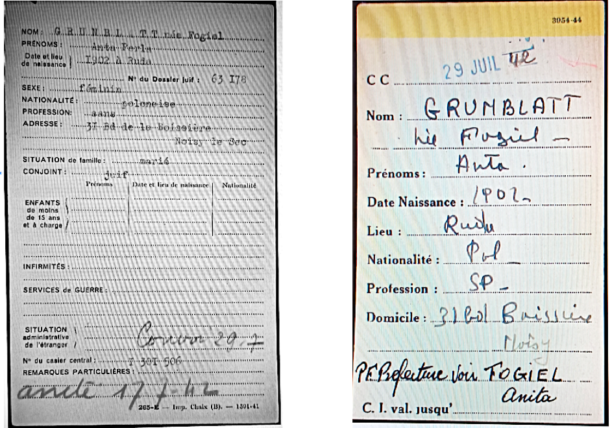 NOM: GRUMBLATT née Fogiel
PRÉNOMS: Anta Perla
Date et lieu de naissance } 1902 à Ruda
N° du Dossier juif: 63 178
SEXE: féminin
NATIONALITÉ: polonaise
PROFESSION: sans
ADRESSE: 31 Bd de la Boissière
Noisy le Sec
SITUATION de famille: marié
CONJOINT: juif
Prénoms Date et lieu de naissance Nationalité
ENFANTS
de moins
de 15 ans
et à charge
INFIRMITÉS:
SERVICES de GUERRE:
SITUATION
administrative
de l'étranger
Convoi 29.7
N° du casier central: 301 506
REMARQUES PARTICULIÈRES:
17 7-42
265-E — Imp. Chaix (B). — 1301-41
3054-44
CC 29 JUIL 42
Nom: GRUMBLATT
née Fogiel
Prénoms: Anta.
Date Naissance: 1902
Lieu: Ruda
Nationalité: Pol
Profession: SP
Domicile: 31 Bd Boissière
Noisy
P.F. Préfecture Voir FOGIEL
Anita
C. I. val. jusqu'